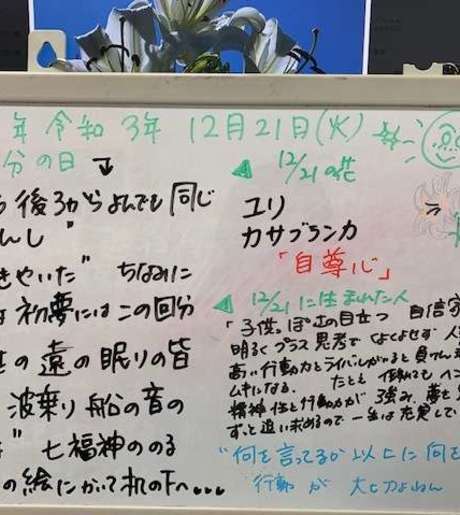 年 令和 3年 12月21日(火)
分の日
後ろからよんでも 同じ
んし"
きやいた" ちなみに
は 初夢にはこの回分
の 遠の 眠りの皆
波乗り 船の音の
" 七福神ののる
の絵にかいて机の下へ...
12/21の花
ユリ
カサブランカ
「自尊心」
12/21 に生まれた人
「子供っぽさの目立つ 自信家
明るく プラス思考で くよくよせず 人
高い行動力とライバルがいると負けん
ムキになる. たとえ 倒れても
精神性と行動力が 強み. 夢を
ずっと追い求めるので 一生は充実して
"何を言ってるか 以上に 何を
行動 が 大切よねん